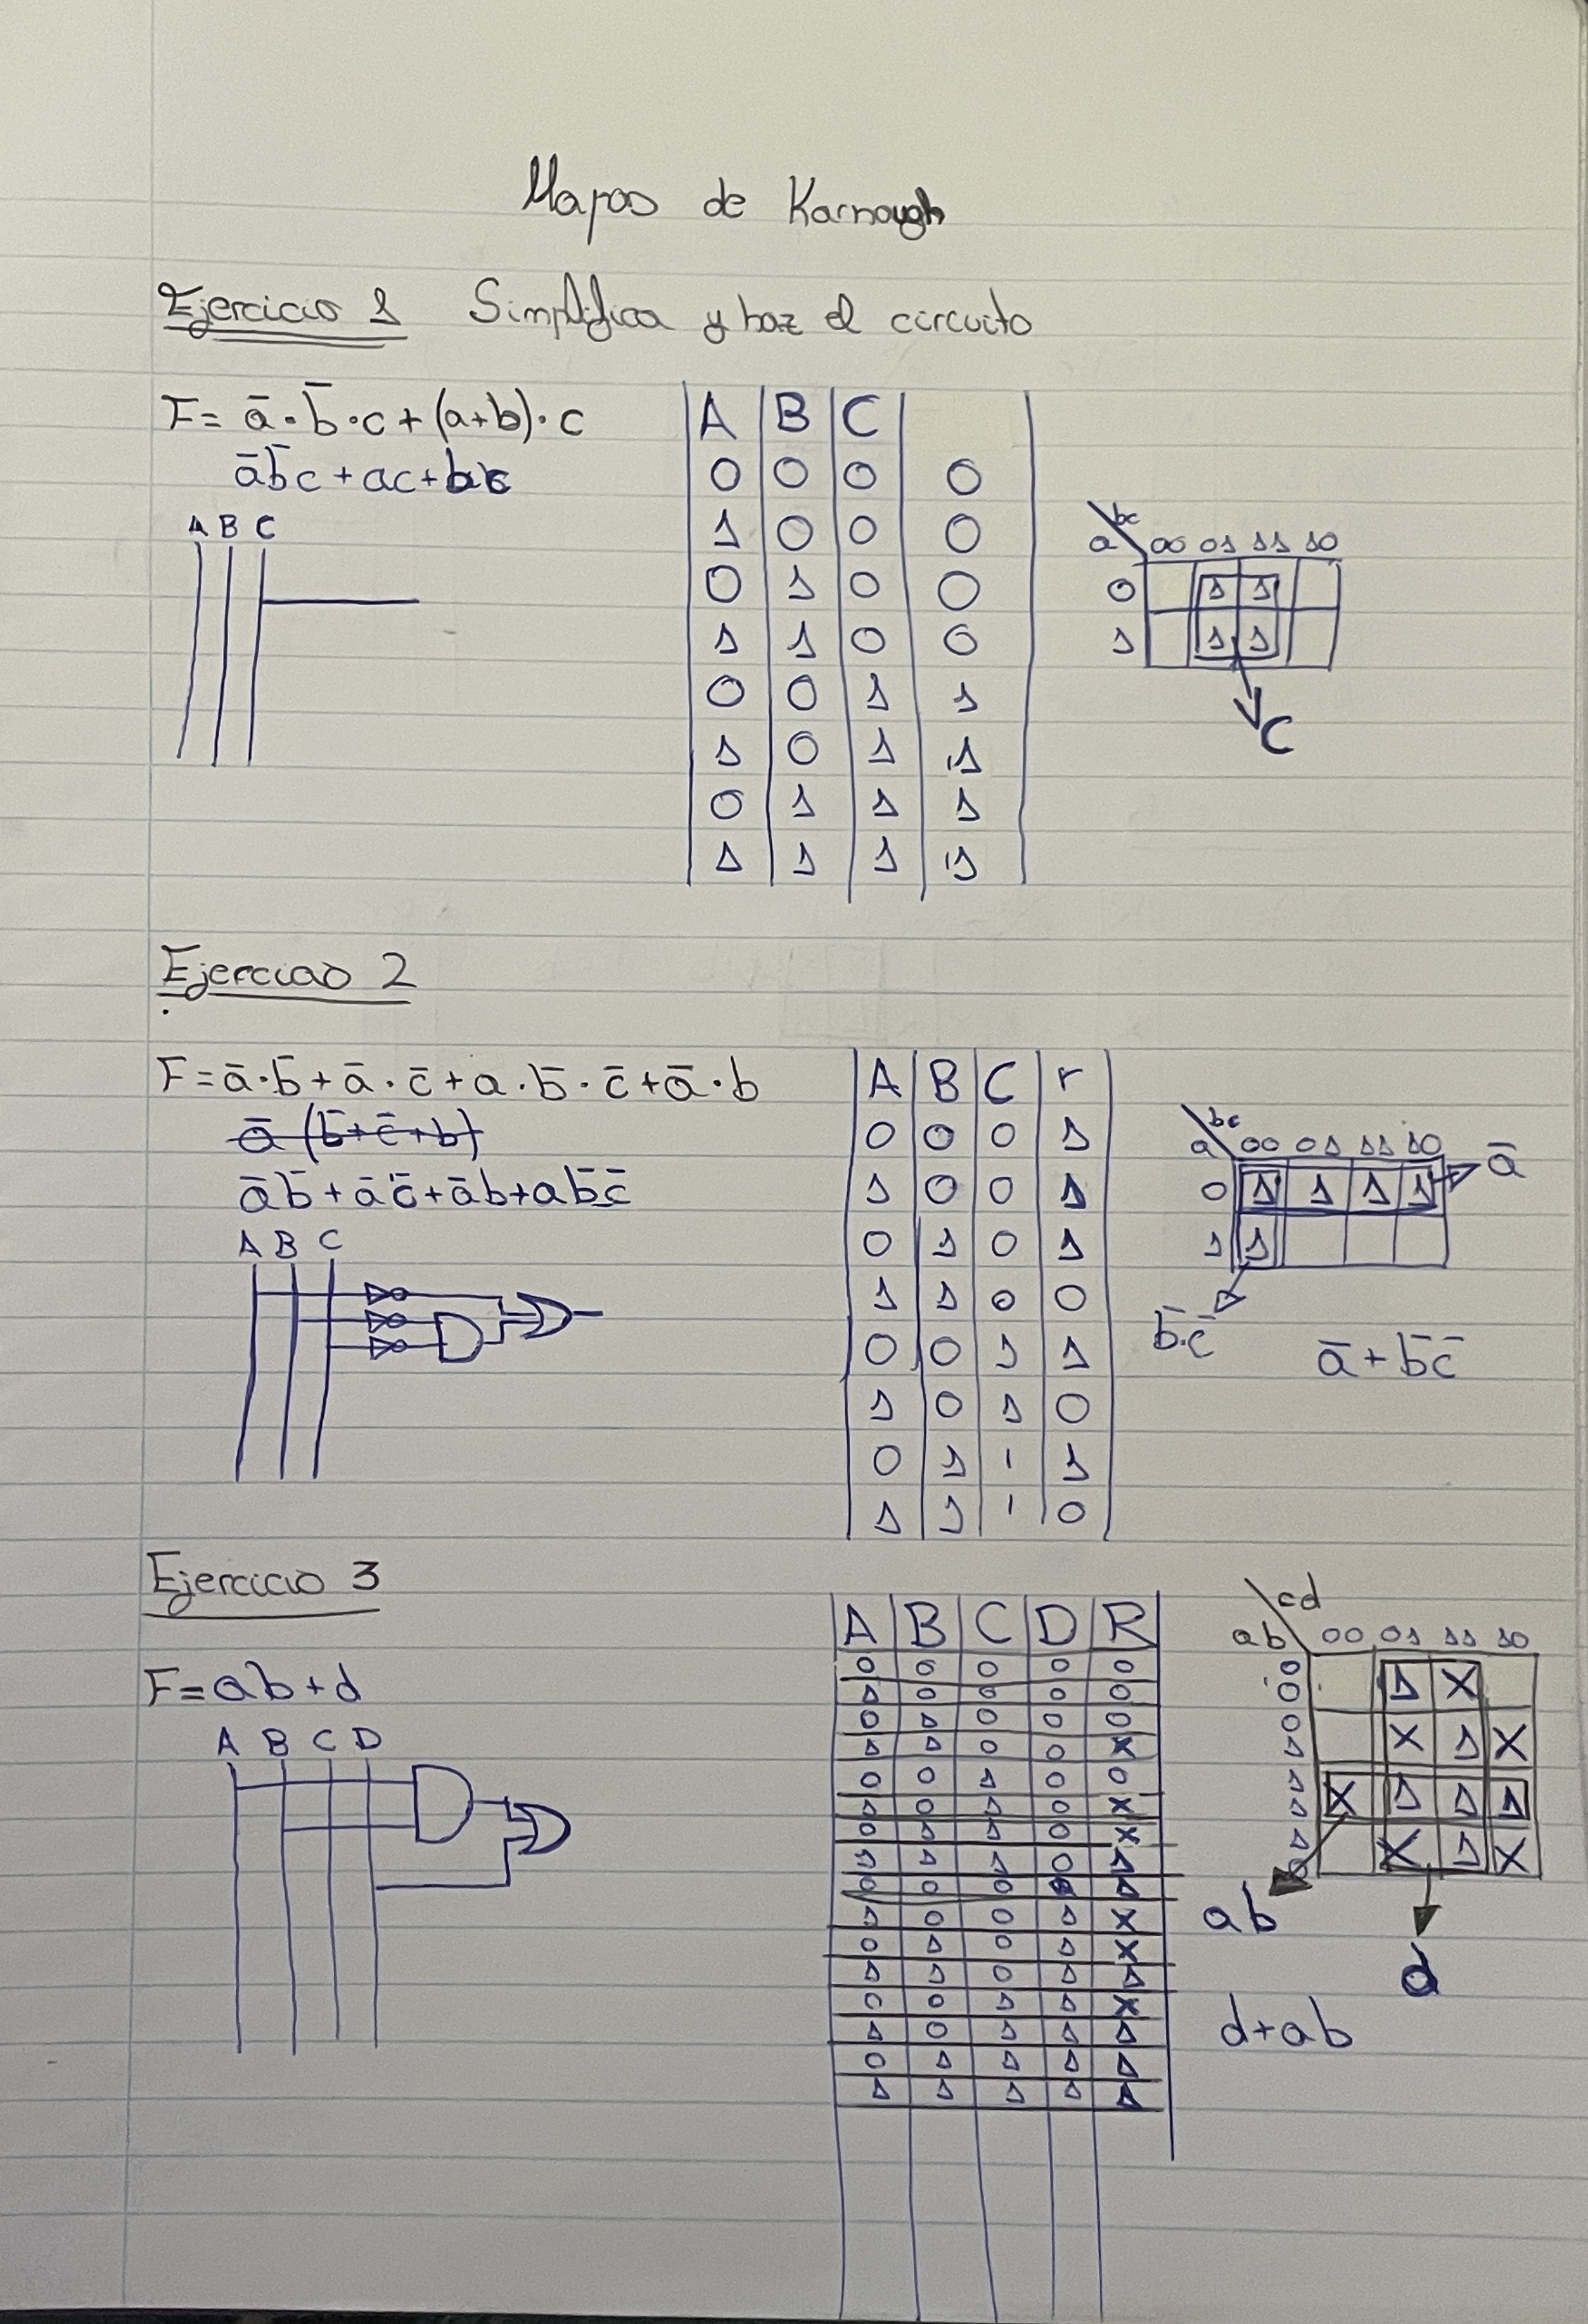 Mapas de Karnaugh
Ejercicio 1 Simplifica y haz el circuito
F= ā·b̄·c+(a+b)·c
āb̄c+ac+bc
A B C
A B C
0 0 0 0
1 0 0 0
0 1 0 0
1 1 0 0
0 0 1 1
1 0 1 1
0 1 1 1
1 1 1 1
bc
a 00 01 11 10
0 1 1
1 1 1
C
Ejercicio 2
F=ā·b̄+ā·c̄+a·b̄·c̄+ā·b
ā(b̄+c̄+b)
āb̄+āc̄+āb+ab̄c̄
A B C
A B C r
0 0 0 1
1 0 0 1
0 1 0 1
1 1 0 0
0 0 1 1
1 0 1 0
0 1 1 1
1 1 1 0
bc
a 00 01 11 10
0 1 1 1 1 ā
1 1
b̄·c̄
ā+b̄c̄
Ejercicio 3
F=ab+d
A B C D
A B C D R
0 0 0 0 0
1 0 0 0 0
0 1 0 0 0
1 1 0 0 X
0 0 1 0 0
1 0 1 0 X
0 1 1 0 X
1 1 1 0 1
0 0 0 1 1
1 0 0 1 X
0 1 0 1 X
1 1 0 1 1
0 0 1 1 X
1 0 1 1 1
0 1 1 1 1
1 1 1 1 1
cd
ab 00 01 11 10
00 1 X
01 X 1 X
11 X 1 1 1
10 X 1 X
ab
d
d+ab